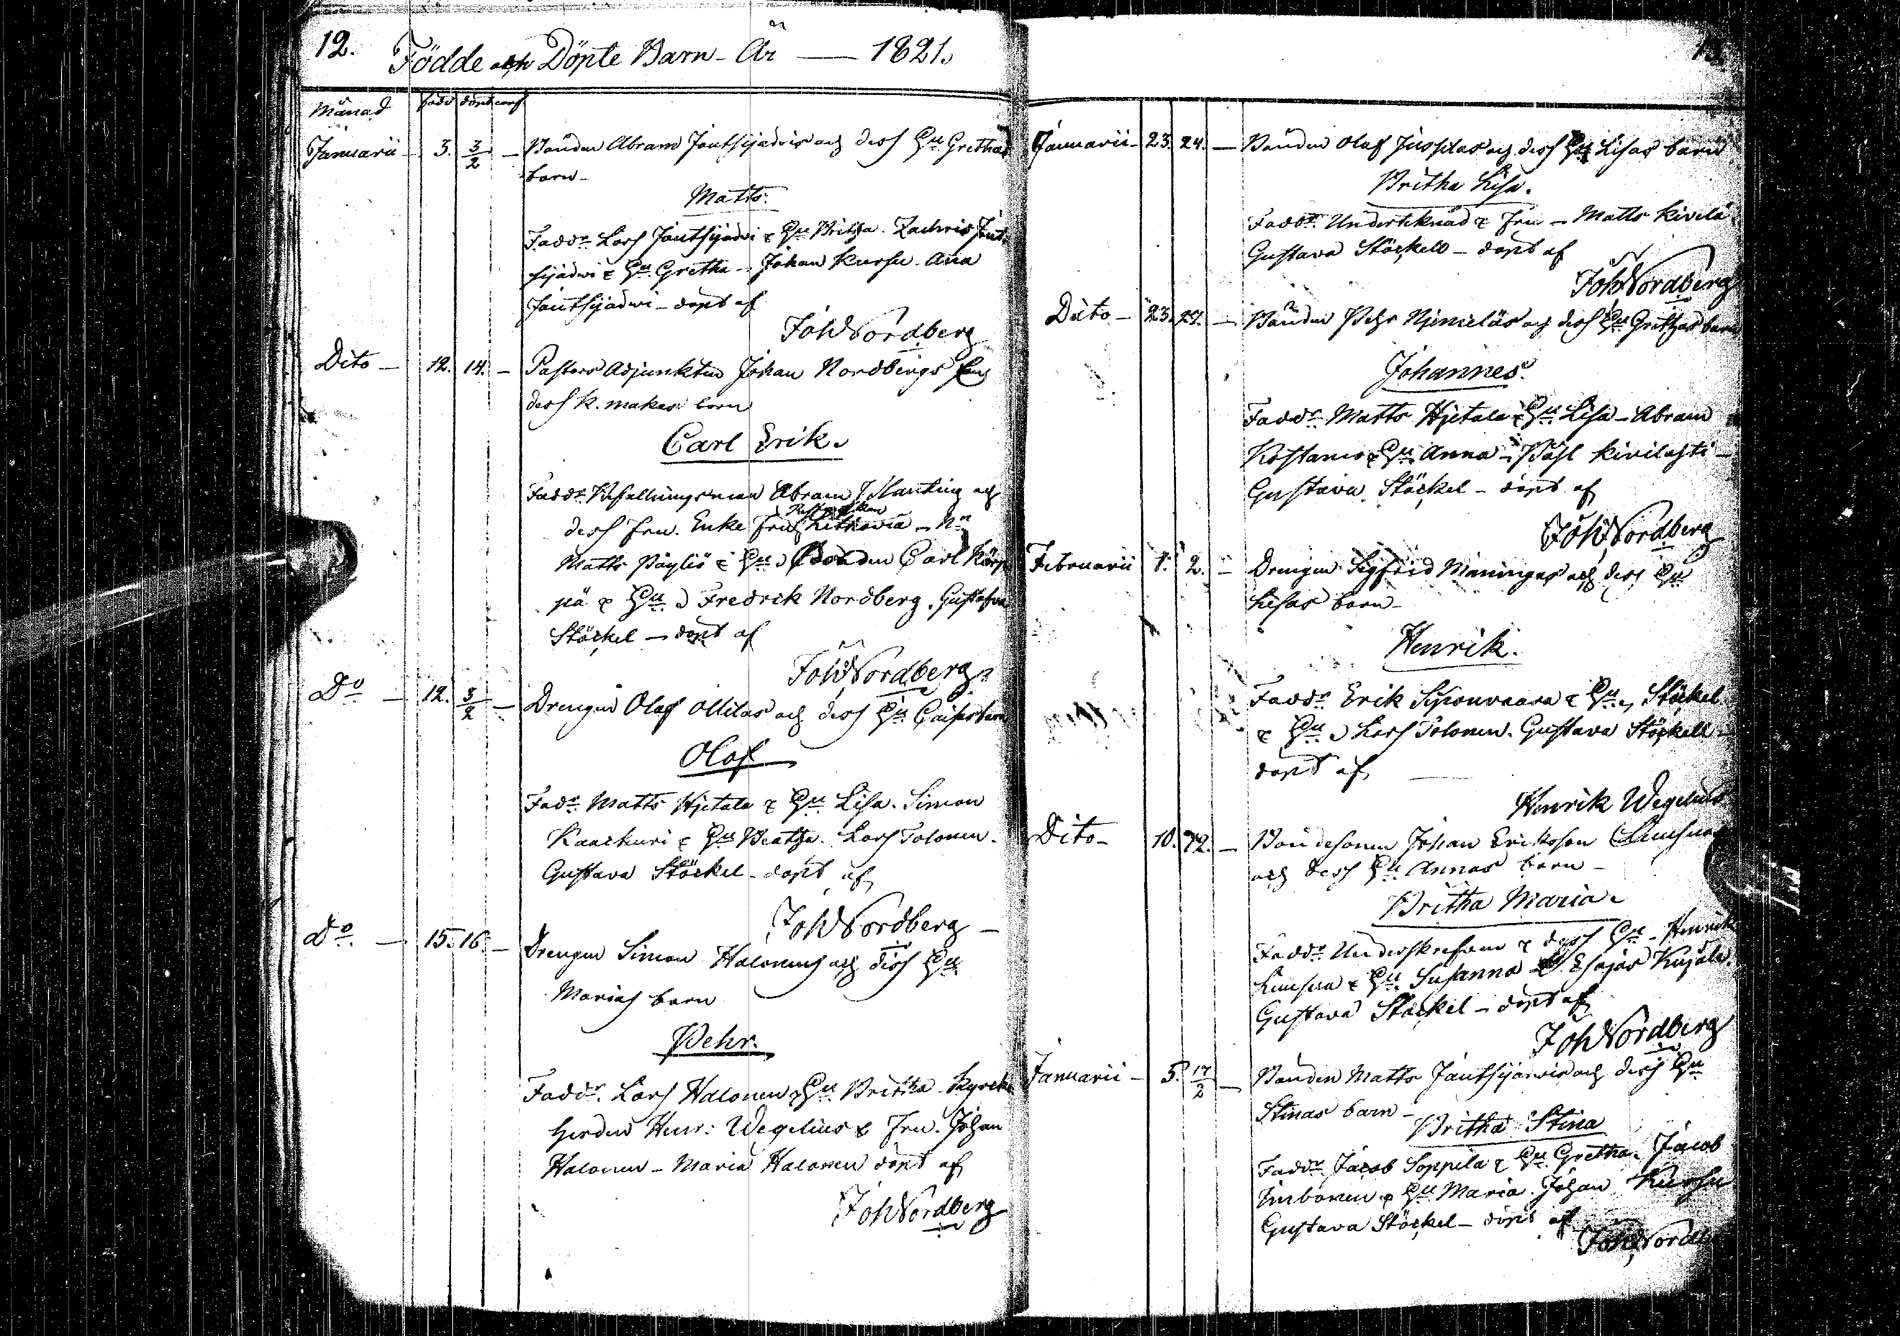 12.
Födde och Döpte Barn År — 1821.
Månad född döpt conf
Januarii 3. 3/2 — Bonden Abram Jäntsijärvis och dess Hu Grethas
barn
Matts
Fadd: Lars Jäntsijärvi & Hu Britha. Zachris Jänt-
sijärwi & Hu Gretha — Johan Kursu. Ana
Jäntsijärwi — döpt af
Joh Nordberg
Dito — 12. 14. — Pastors Adjunkten Johan Nordbergs och
dess k. makas barn
Carl Erik.
Fadd: Befallningsman Abram Planting och
dess fru. Enke Fru
Matts Päyliö & Hu Bonden Carl Körp-
pä & Hu Fredrik Nordberg. Gustava
Stöckel — döpt af
Joh Nordberg
Do — 12. 3/2 — Drengen Olof Ollilas och dess Hu
Olof
Fadd: Matts Hjetala & Hu Lisa. Simon
Kaackuri & Hu Beatha. Lars Tolonen.
Gustava Stöckel — döpt af
Joh Nordberg
Do — 15. 16. — Drengen Simon Halonens och dess Hu
Marias barn
Pehr.
Fadd: Lars Halonen & Hu Britha. Kyrko-
herden Henr: Wegelius & Fru. Johan
Halonen — Maria Halonen döpt af
Joh Nordberg
13.
Januarii — 23. 24. — Bonden Olof Jusslas och dess Hu Lisas barn
Britha Lisa.
Fadd: Underteknad & fru — Matts Kivelä
Gustava Stöckell — döpt af
Joh Nordberg
Dito — 23. 27. — Bonden Pehr Njemeläs och dess Hu Grethas barn
Johannes.
Fadd: Matts Hjetala & Hu Lisa — Abram
Kostamo & Hu Anna — Påhl Kivilahti —
Gustava Stöckel — döpt af
Joh Nordberg
Februarii 1. 2. — Drengen Sigfrid Maningas och dess Hu
Lisas barn —
Henrik.
Fadd: Erik Siponvaara & Hu, Stöckel
& Hu Lars Tolonen. Gustava Stöckell —
döpt af
Henrik Wegelius
Dito — 10. 12. — Bondesonen Johan Eriksson
och dess Hu Annas barn —
Britha Maria.
Fadd: Underskrefven & dess Hu — Henrik
& Hu Susanna — Esajas Kujala.
Gustava Stöckel — döpt af
Joh Nordberg
Januarii — 5. 17/2 — Bonden Matts Jäntsijärvis och dess Hu
Stinas barn —
Britha Stina
Fadd: Jacob Soppela & Hu Gretha. Jacob
& Hu Maria. Johan Kursu
Gustava Stöckel — döpt af
Joh Nordb